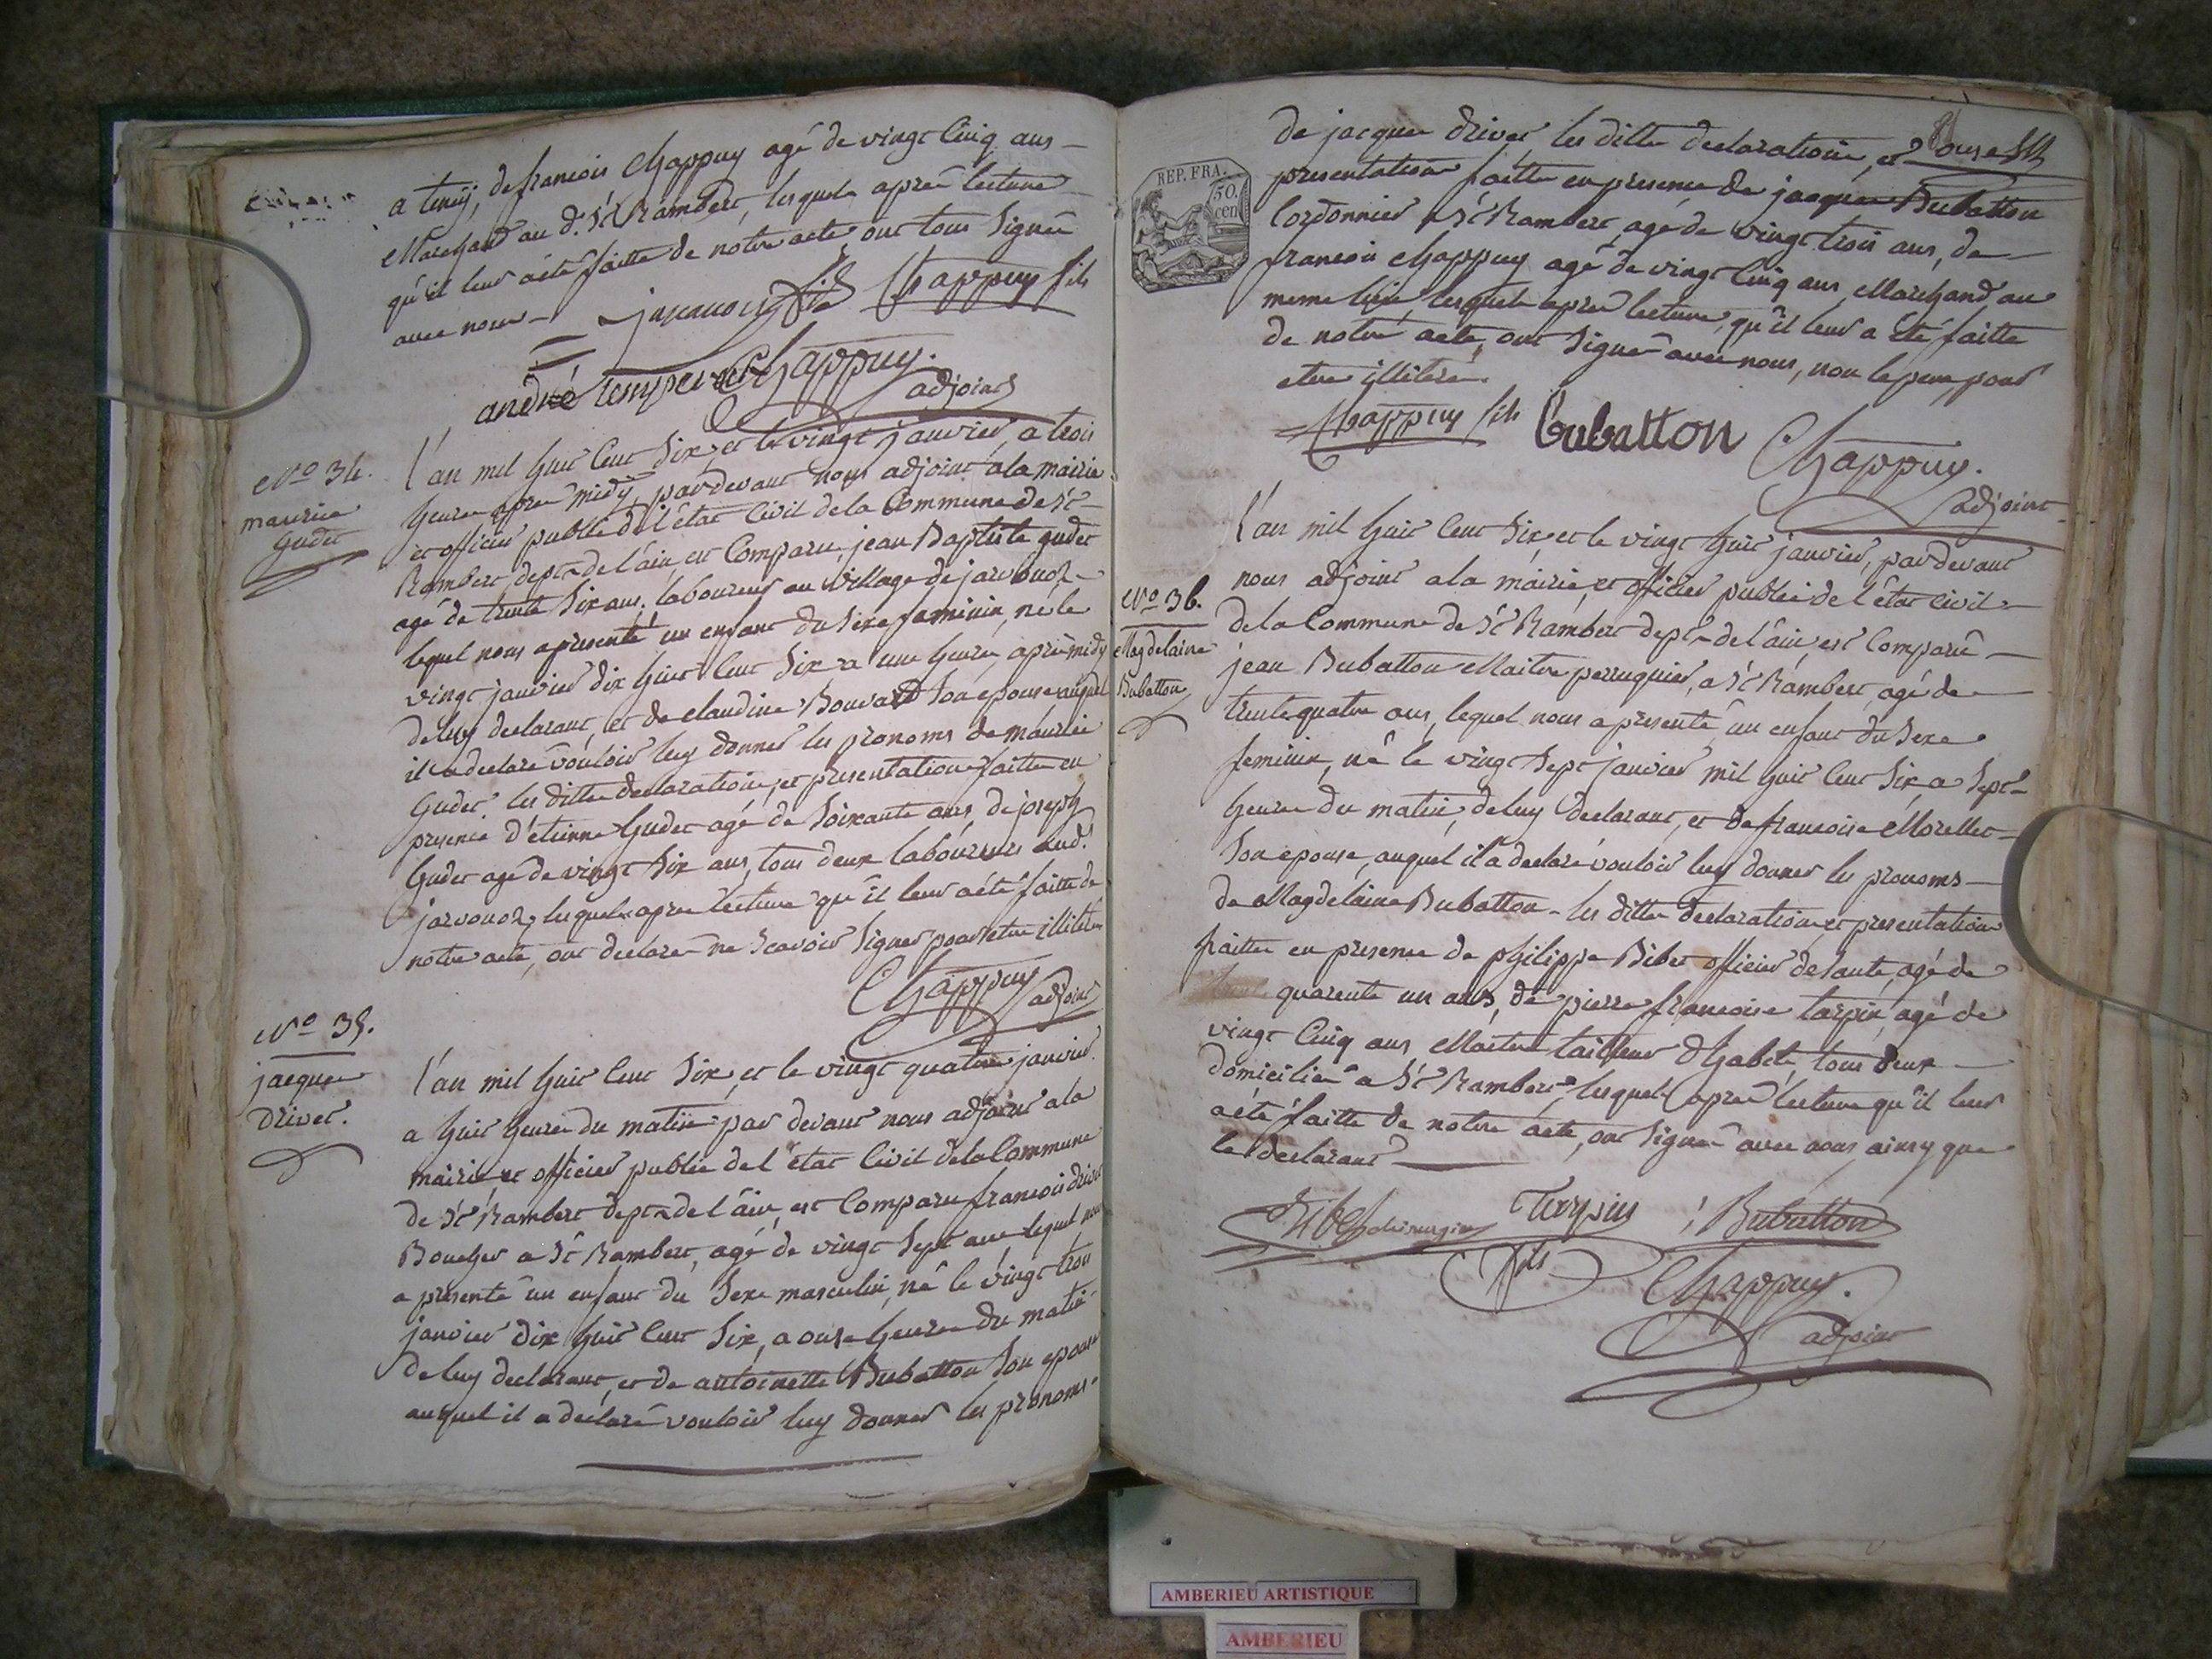 a tenay, de francois Chappuy agé de vingt Cinq ans
Marchand au d. St Rambert, lesquels aprés lecture
qu'il leur aété faitte de notre acte ont tous Signés
avec nous
Chappuy fils
andré tempere Chappuy.
adjoint
No 34.
maurice
Gudet
L'an mil huit Cent Six, et le vingt janvier, a trois
heures apres midy, pardevant nous adjoint ala mairie
et officier public de l'état Civil de la Commune de St
Rambert, dept de l'ain, est Comparu jean Baptiste gudet
agé de trente Six ans, laboureur au village de javornoz
lequel nous apresenté un enfant du Sexe feminin, né le
vingt janvier dix huit Cent Six a une heure, aprés midy
de luy declarant, et de Claudine Bouvard Son epouse auquel
il a declaré vouloir luy donner les pronoms de maurice
Gudet. les dittes declarations, et presentations faittes en
presence d'étienne Gudet agé de Soixante ans, de joseph
Gudet agé de vingt Six ans, tous deux laboureurs aud.
javornoz, lesquels apres lecture qu'il leur aété faitte de
notre acte, ont declaré ne Scavoir Signer pour etre illiteré
Chappuy
adjoint
No 35.
jacques
Drivet.
L'an mil huit Cent Six, et le vingt quatre janvier
a huit heures du matin par devant nous adjoint ala
mairie et officier public de l'état Civil dela Commune
de St Rambert dept de l'ain, est Comparu francois drivet
Boucher a St Rambert, agé de vingt Sept ans lequel nous
a presenté un enfant du Sexe masculin, né le vingt trois
janvier dix huit Cent Six, a onse heures du matin
de luy declarant, et de antoinette Bubatton Son epouse
auquel il a declaré vouloir luy donner les pronoms
de jacques drivet, les dittes declarations, et
REP. FRA.
50.
cen
presentations faittes en presence de jacques Bubatton
Cordonnier a St Rambert agé de vingt trois ans, de
francois Chappuy agé de vingt Cinq ans, Marchand au
meme lieu, lesquels apres lecture, qu'il leur a été faitte
de notre acte, ont Signés avec nous, non le pere pour
etre illiteré.
Chappuy fils Bubatton Chappuy.
adjoint
No 36.
Magdelaine
Bubatton
L'an mil huit Cent Six et le vingt huit janvier, pardevant
nous adjoint ala mairie, et officier public de l'état Civil
de la Commune de St Rambert dept de l'ain, est Comparu
jean Bubatton Maitre perruquier, a St Rambert, agé de
trente quatre ans, lequel nous a presenté un enfant du Sexe
feminin, né le vingt Sept janvier mil huit Cent Six a Sept
heures du matin, de luy declarant, et de francoise Morellet
Son epouse, auquel il a declaré vouloir luy donner les pronoms
de Magdelaine Bubatton. les dittes declarations et presentations
faittes en presence de philippe Bibet officier de Santé, agé de
quarente un ans, de pierre francoise tarpin, agé de
vingt Cinq ans Maitre tailleur d'habits, tous deux
domiciliés a St Rambert, lesquels apres lecture qu'il leur
aété faitte de notre acte, ont Signés avec nous ainsy que
le declarant
Bibet chirurgien Tarpin Bubatton
fils
Chappuy.
adjoint
AMBERIEU ARTISTIQUE
AMBERIEU